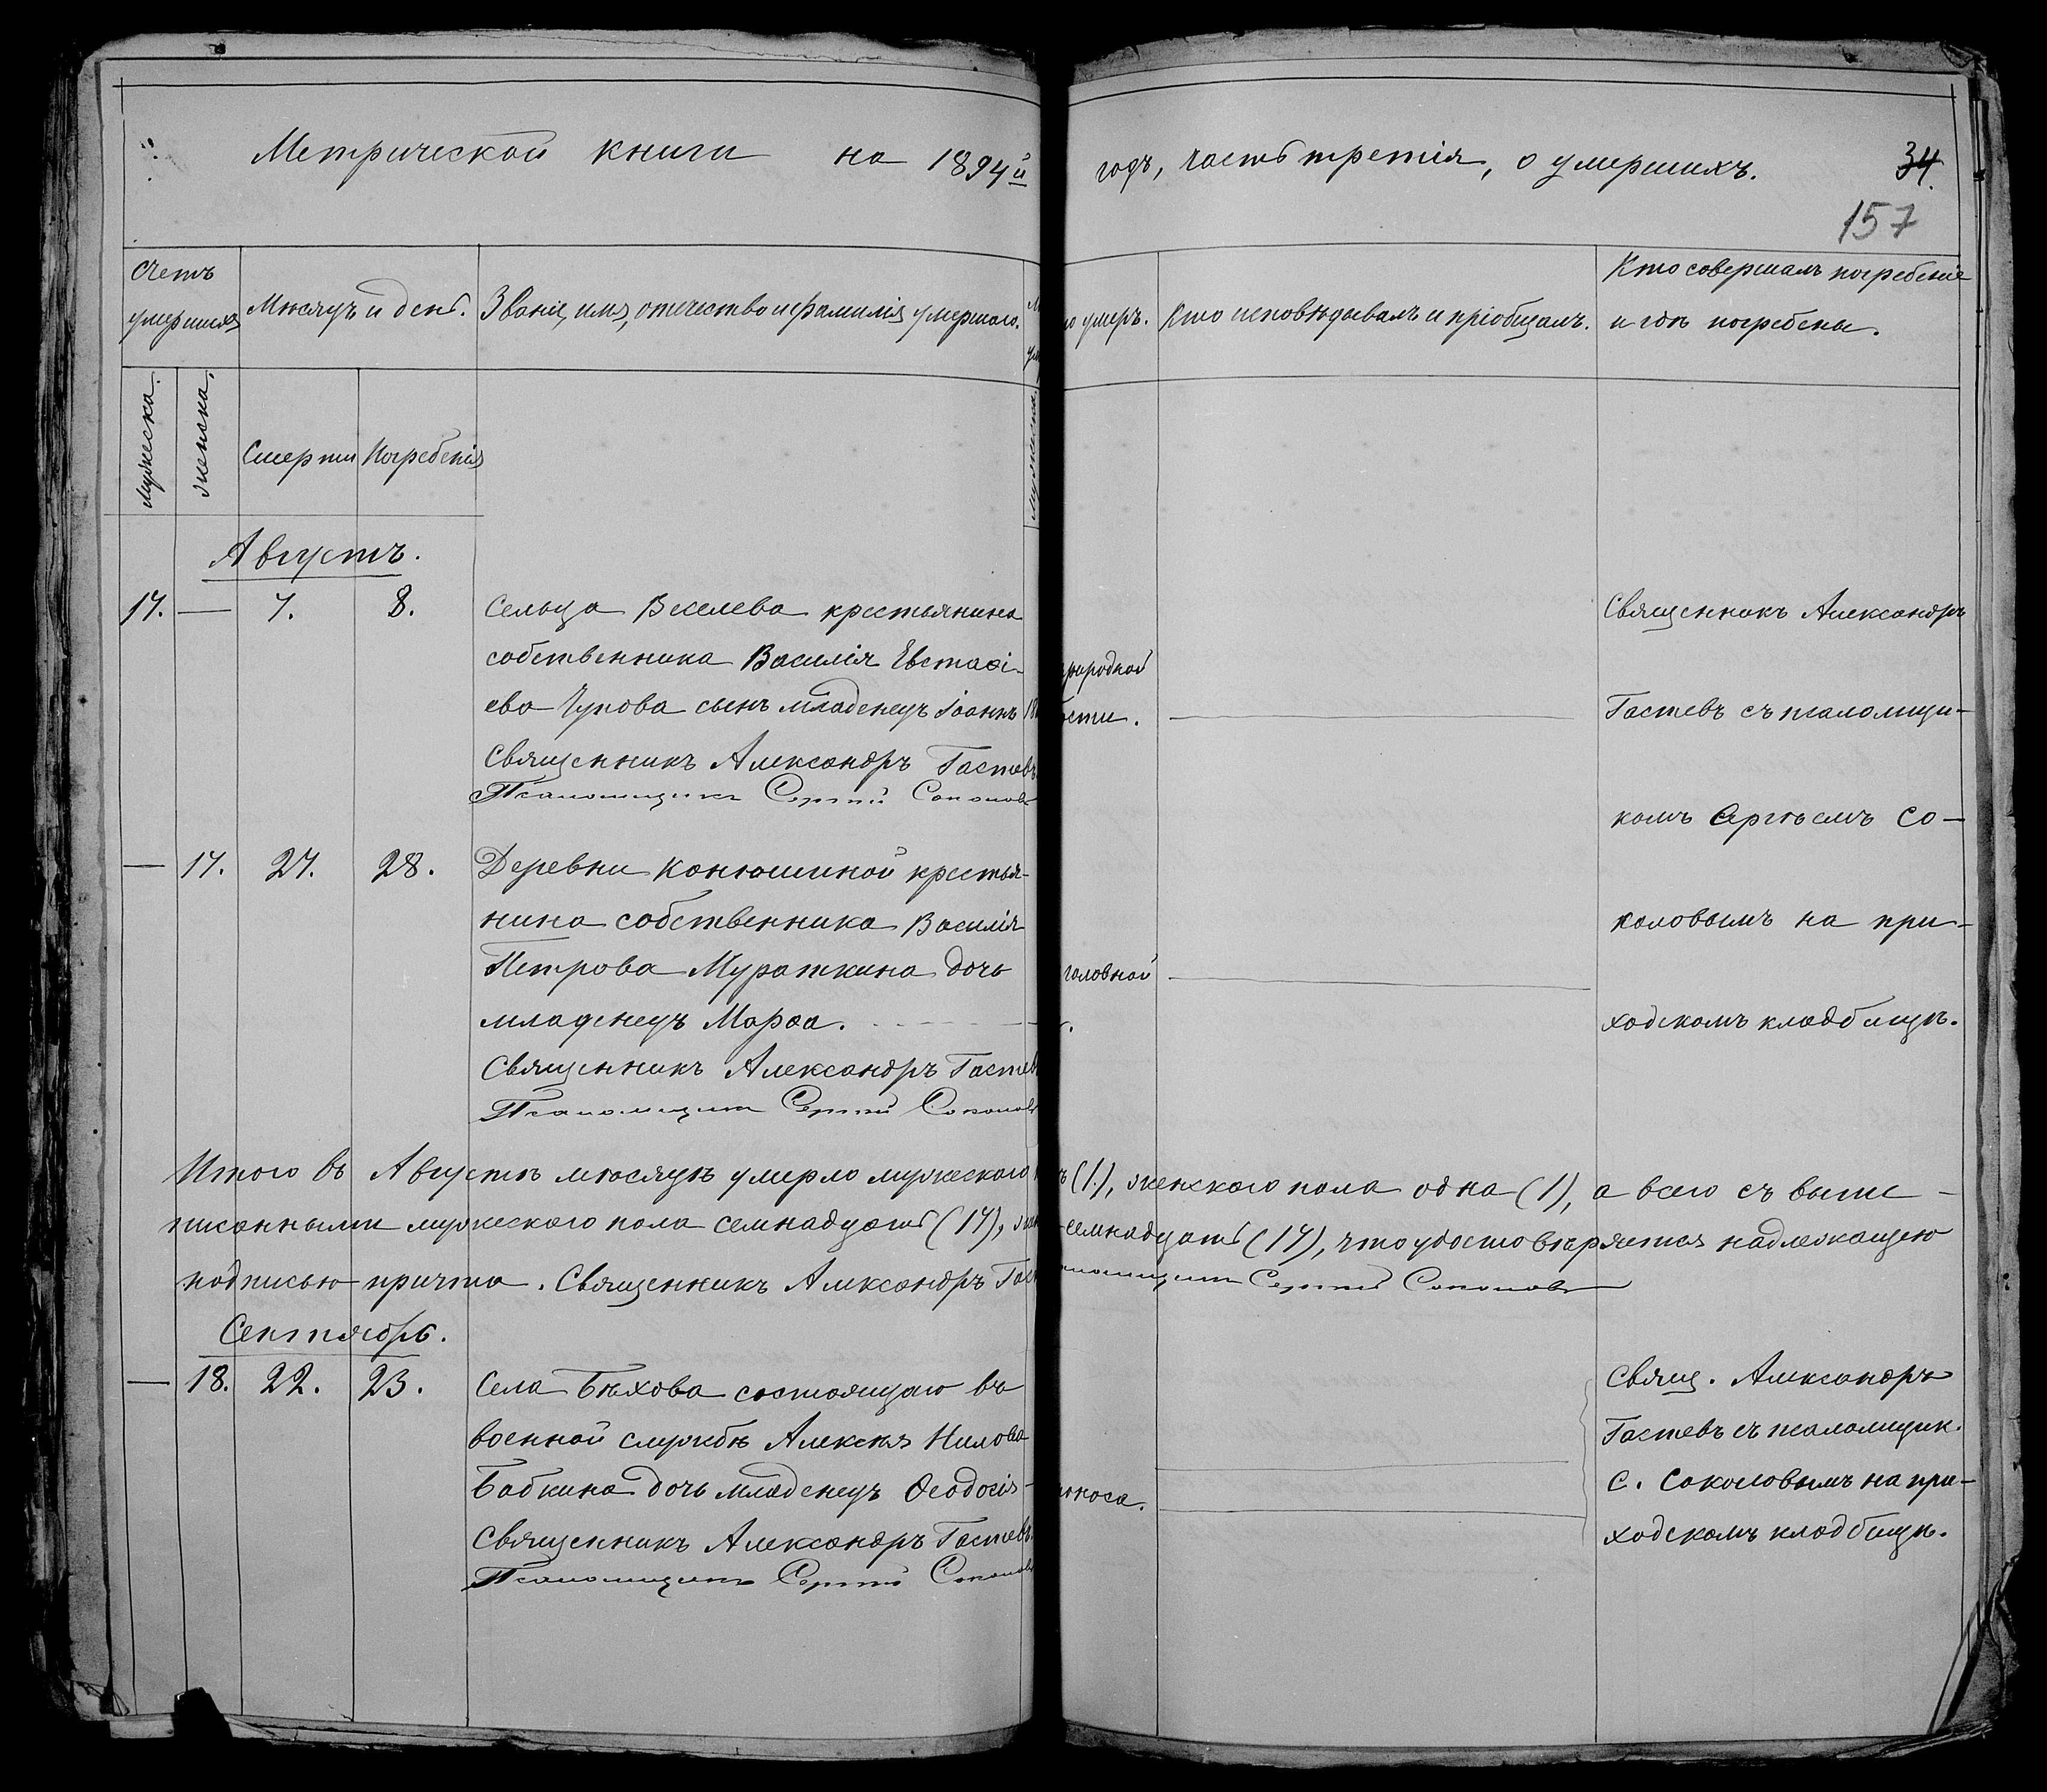 Метрической книги на 1894й годъ, часть третія, о умершихъ. 34.
157
Счетъ умершихъ
Мѣсяцъ и день.
Званіе, имя, отчество и фамилія умершаго.
умеръ.
Кто исповѣдывалъ и пріобщалъ.
Кто совершалъ погребеніе
и гдѣ погребены.
Мужеска.
женска.
Смерти
Погребенія
Августъ.
17. — 7. 8. Сельца Веелева крестьянина
собственника Василія Евстаѳі-
ева Чупова сынъ младенецъ Іоаннъ
Священникъ Александръ Гастевъ
Псаломщикъ Сергій Соколовъ
природной
ости.
Священникъ Александръ
Гастевъ съ псаломщи-
комъ Сергѣемъ Со-
коловымъ на при-
ходскомъ кладбищѣ.
— 17. 27. 28. Деревни Конюшиной крестья-
нина собственника Василія
Петрова Мураткина дочь
младенецъ Марѳа.
Священникъ Александръ Гастевъ
Псаломщикъ Сергій Соколовъ
головной
Итого въ Августѣ мѣсяцѣ умерло мужескаго ъ (1.), женскаго пола одна (1), а всего съ выше-
писанными мужескаго пола семнадцать (17), семнадцать (17), что удостовѣряется надлежащею
подписью причта. Священникъ Александръ Гас Сергій Соколовъ
Сентябрь.
— 18. 22. 23. Села Бѣхова состоящаго въ
военной службѣ Алексѣя Нилова
Бабкина дочь младенецъ Ѳеодосія-
Священникъ Александръ Гастевъ.
Псаломщикъ Сергій Соколовъ
поноса.
Свящ. Александръ
Гастевъ съ псаломщик.
С. Соколовымъ на при-
ходскомъ кладбищѣ.